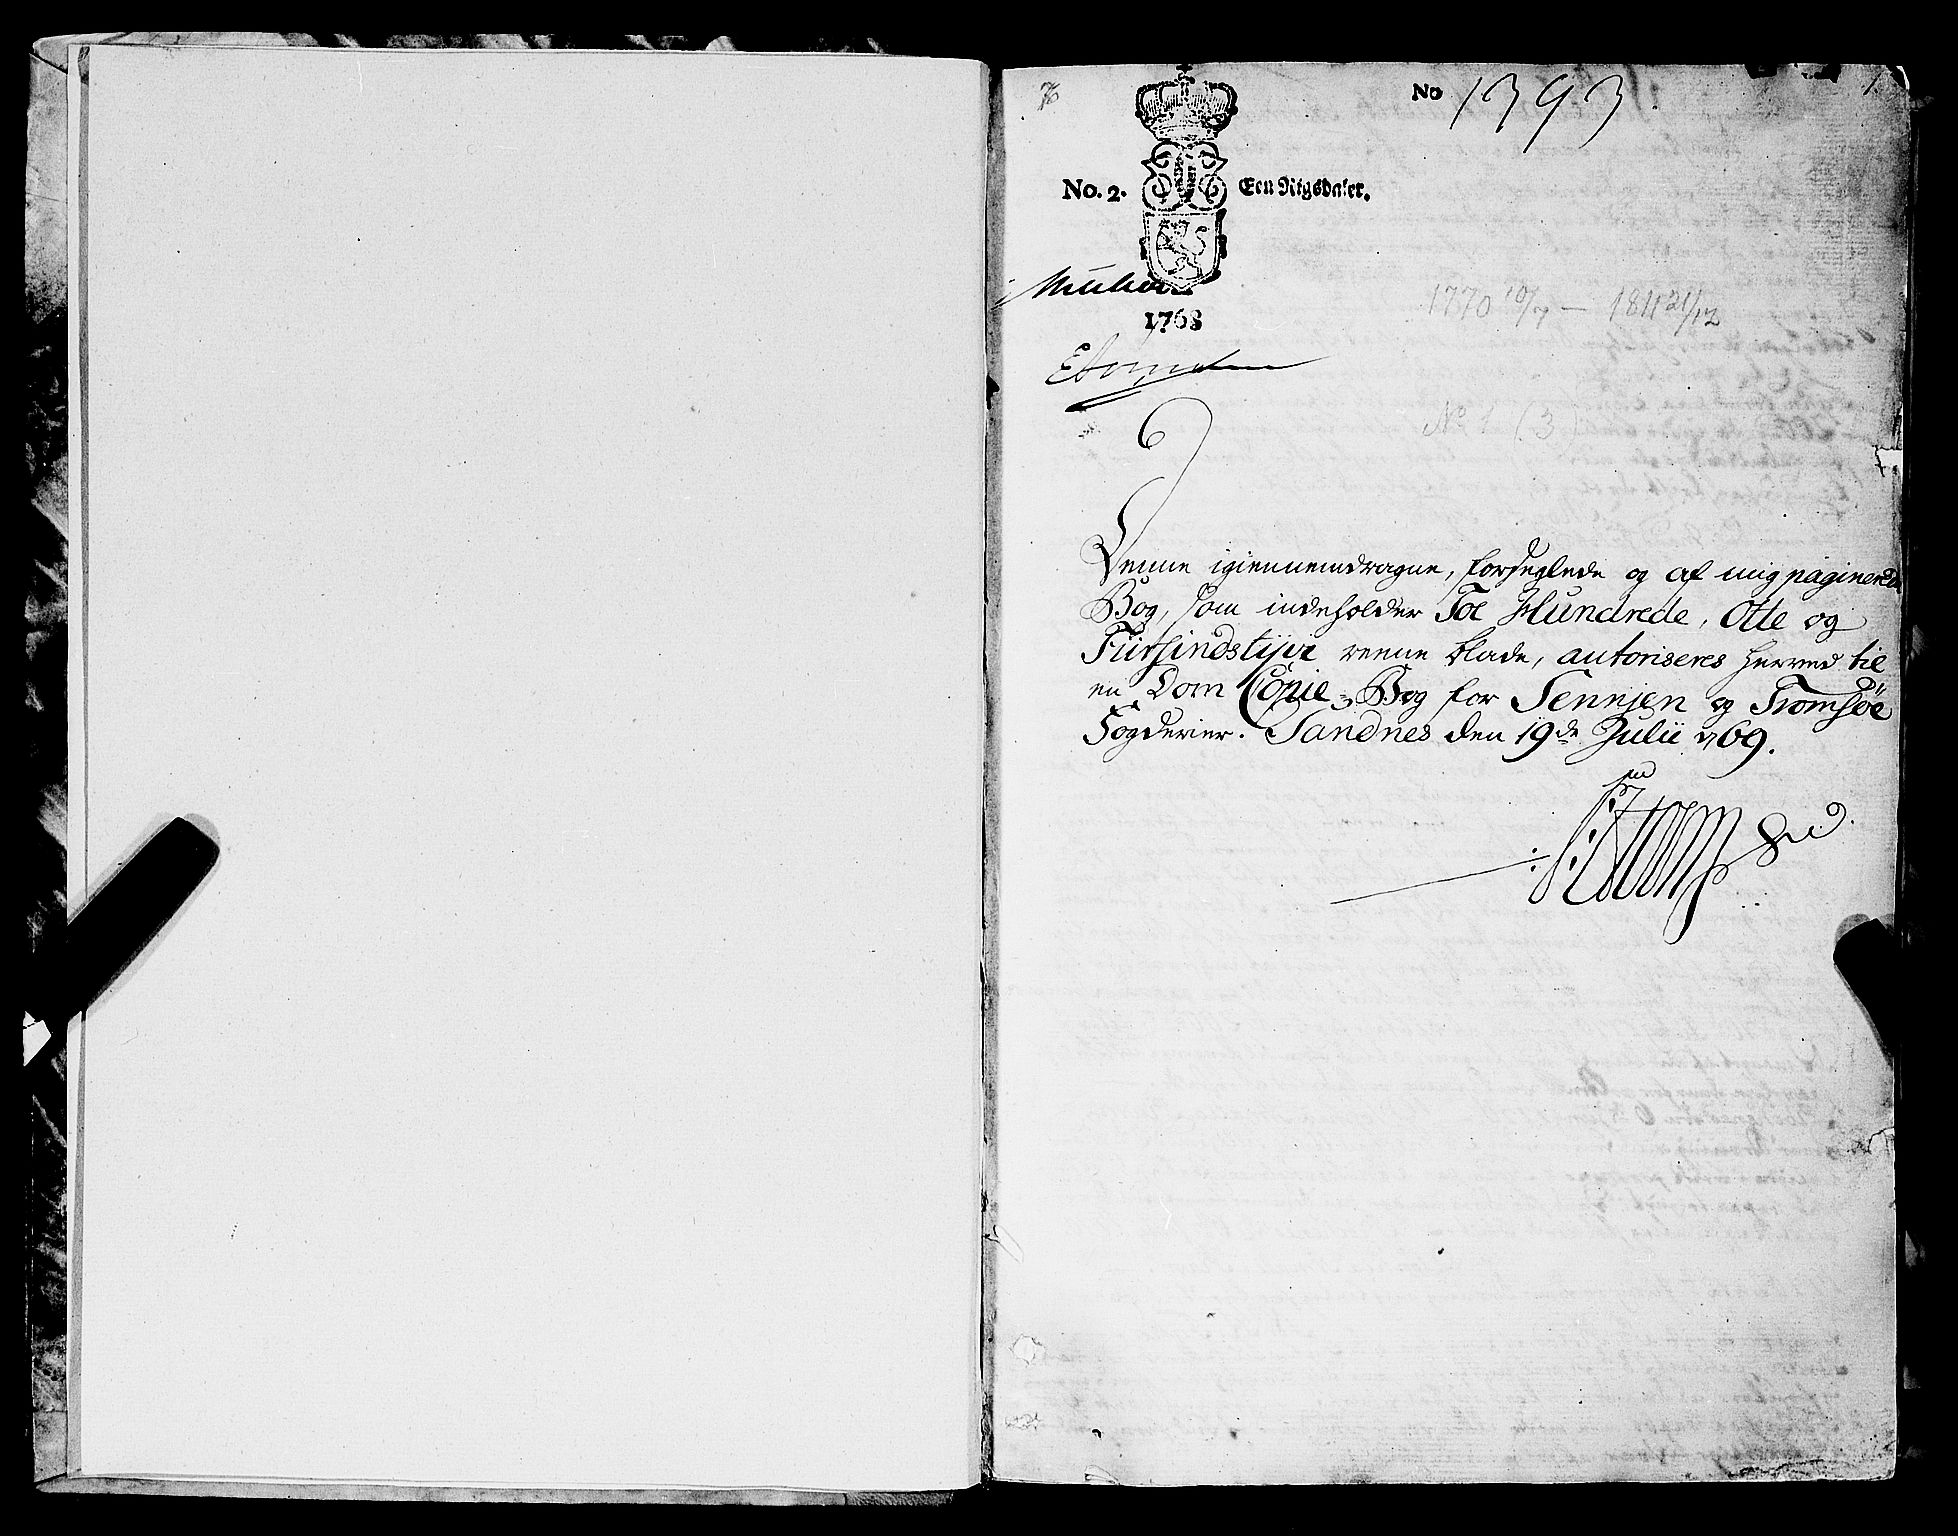 No 1393.
1.
No. 2. Een Rigsdaler.
1768
1770 10/7 — 1811 21/12
No 1 (3)
Denne igiennemdragne, forseglede og af mig paginerede
Bog, som indeholder Toe Hundrede, Otte og
Fiirsindstyve reene blade, autoriseres herved til
en Dom Copie-Bog for Sennjen og Tromsöe
Fogderier. Sandnes den 19de Julii 1769.